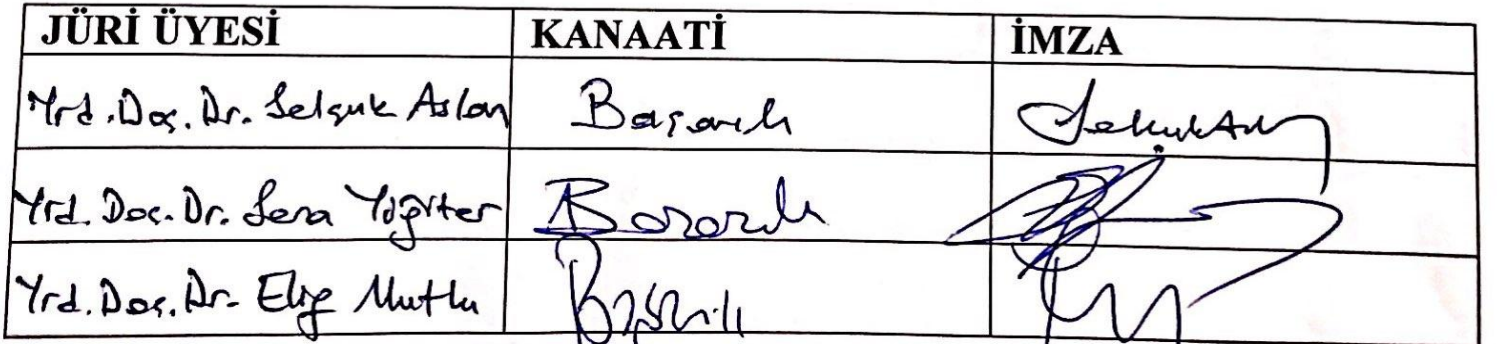 JÜRİ ÜYESİ KANAATİ İMZA
Yrd. Doç. Dr. Selçuk Aslan Başarılı
Yrd. Doç. Dr. Sera Yiğiter Başarılı
Yrd. Doç. Dr. Elif Mutlu Başarılı